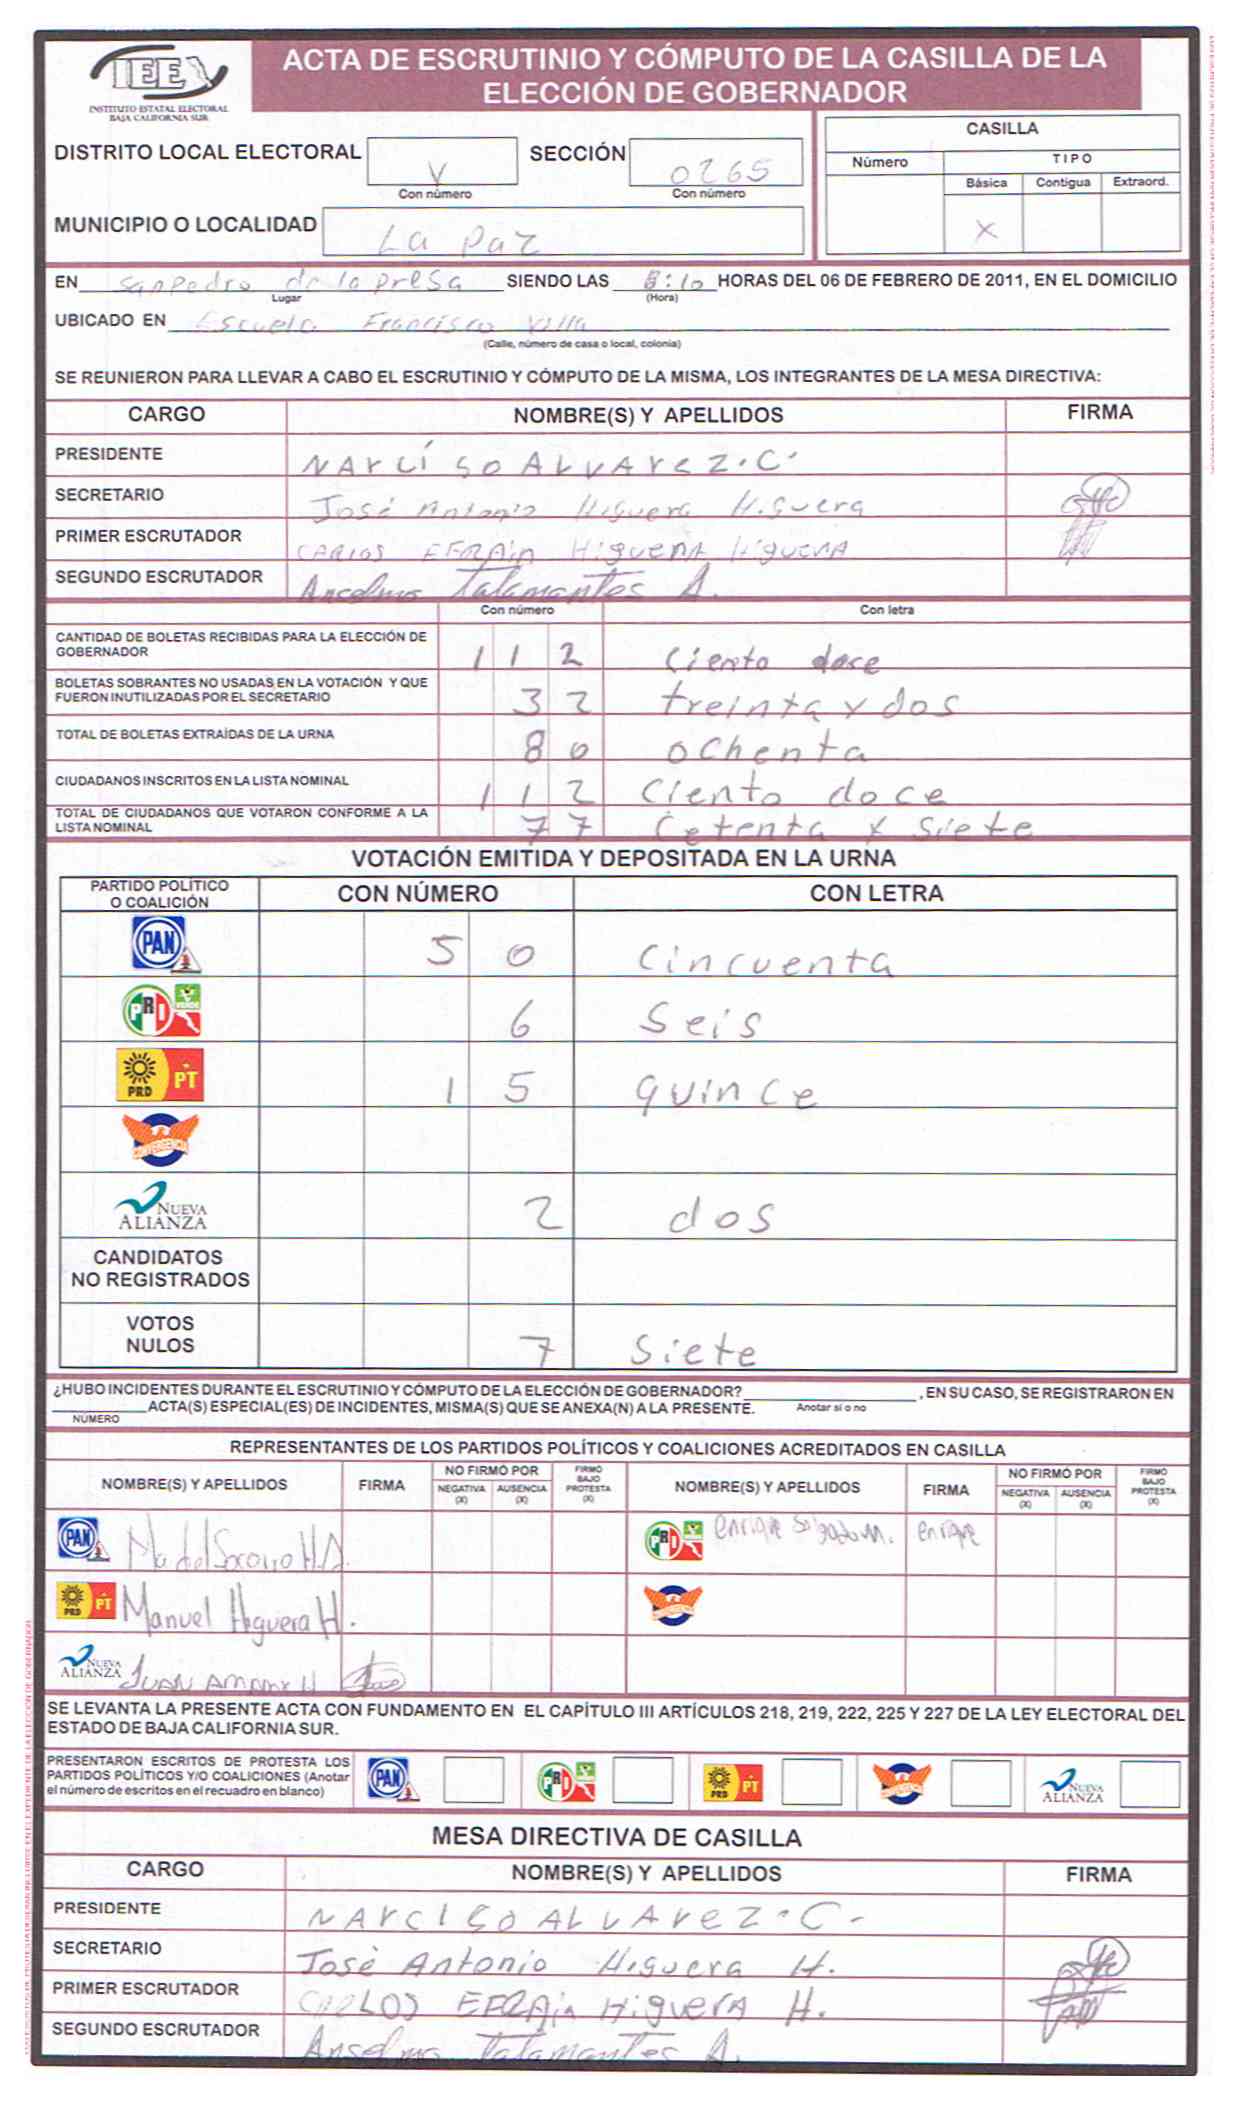 IEE
INSTITUTO ESTATAL ELECTORAL
BAJA CALIFORNIA SUR
ACTA DE ESCRUTINIO Y CÓMPUTO DE LA CASILLA DE LA
ELECCIÓN DE GOBERNADOR
DISTRITO LOCAL ELECTORAL V SECCIÓN 0265
Con número Con número
CASILLA
Número TIPO
Básica Contigua Extraord.
X
MUNICIPIO O LOCALIDAD La Paz
EN San Pedro de la presa SIENDO LAS 8:10 HORAS DEL 06 DE FEBRERO DE 2011, EN EL DOMICILIO
Lugar (Hora)
UBICADO EN Escuela Francisco Villa
(Calle, número de casa o local, colonia)
SE REUNIERON PARA LLEVAR A CABO EL ESCRUTINIO Y CÓMPUTO DE LA MISMA, LOS INTEGRANTES DE LA MESA DIRECTIVA:
CARGO NOMBRE(S) Y APELLIDOS FIRMA
PRESIDENTE NARCÍSO ALVAREZ.C.
SECRETARIO José Antonio Higuera Higuera
PRIMER ESCRUTADOR CARLOS EFRAin HiguerA HiguerA
SEGUNDO ESCRUTADOR Anselmo Talamantes A.
Con número Con letra
CANTIDAD DE BOLETAS RECIBIDAS PARA LA ELECCIÓN DE
GOBERNADOR 112 Ciento doce
BOLETAS SOBRANTES NO USADAS EN LA VOTACIÓN Y QUE
FUERON INUTILIZADAS POR EL SECRETARIO 32 treinta y dos
TOTAL DE BOLETAS EXTRAÍDAS DE LA URNA 80 ochenta
CIUDADANOS INSCRITOS EN LA LISTA NOMINAL 112 Ciento doce
TOTAL DE CIUDADANOS QUE VOTARON CONFORME A LA
LISTA NOMINAL 77 Cetenta y siete
VOTACIÓN EMITIDA Y DEPOSITADA EN LA URNA
PARTIDO POLÍTICO
O COALICIÓN CON NÚMERO CON LETRA
PAN 50 Cincuenta
PRI VERDE 6 Seis
PRD PT 15 quince
CONVERGENCIA
NUEVA ALIANZA 2 dos
CANDIDATOS
NO REGISTRADOS
VOTOS
NULOS 7 Siete
¿HUBO INCIDENTES DURANTE EL ESCRUTINIO Y CÓMPUTO DE LA ELECCIÓN DE GOBERNADOR? , EN SU CASO, SE REGISTRARON EN
ACTA(S) ESPECIAL(ES) DE INCIDENTES, MISMA(S) QUE SE ANEXA(N) A LA PRESENTE. Anotar sí o no
NÚMERO
REPRESENTANTES DE LOS PARTIDOS POLÍTICOS Y COALICIONES ACREDITADOS EN CASILLA
NOMBRE(S) Y APELLIDOS FIRMA NO FIRMÓ POR NEGATIVA (X) AUSENCIA (X) FIRMÓ BAJO PROTESTA (X) NOMBRE(S) Y APELLIDOS FIRMA NO FIRMÓ POR NEGATIVA (X) AUSENCIA (X) FIRMÓ BAJO PROTESTA (X)
PAN Ma del Socorro H.A. PRI enrique Salgado M. enrique
PRD PT Manuel Higuera H. CONVERGENCIA
NUEVA ALIANZA JUAN AMADOR H
SE LEVANTA LA PRESENTE ACTA CON FUNDAMENTO EN EL CAPÍTULO III ARTÍCULOS 218, 219, 222, 225 Y 227 DE LA LEY ELECTORAL DEL
ESTADO DE BAJA CALIFORNIA SUR.
PRESENTARON ESCRITOS DE PROTESTA LOS
PARTIDOS POLÍTICOS Y/O COALICIONES (Anotar
el número de escritos en el recuadro en blanco)
PAN PRI PRD PT CONVERGENCIA NUEVA ALIANZA
MESA DIRECTIVA DE CASILLA
CARGO NOMBRE(S) Y APELLIDOS FIRMA
PRESIDENTE NARCISO ALVAREZ.C.
SECRETARIO José Antonio Higuera H.
PRIMER ESCRUTADOR CARLOS EFRAin HiguerA H.
SEGUNDO ESCRUTADOR Anselmo Talamantes A.